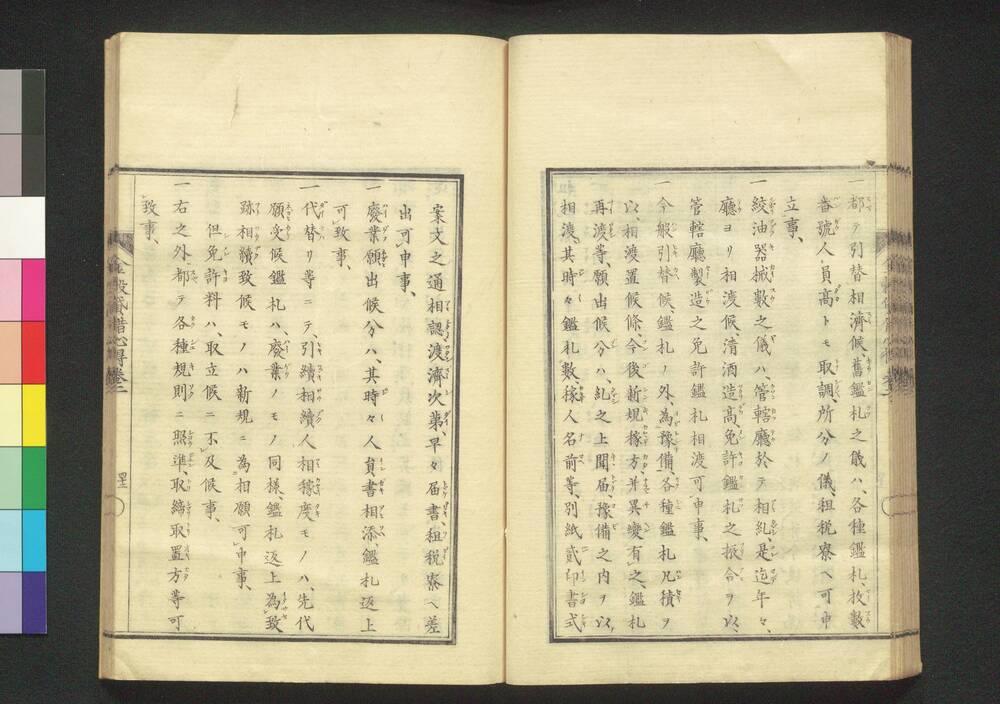 一都テ引替相濟候、舊鑑札之儀ハ、各種鑑札、枚數
番號人員高トモ取調、所分ノ儀、租税寮ヘ可申
立事、
一絞油器械數之儀ハ、管轄廳於テ相糺是迄年々、
廳ヨリ相渡候、清酒造高、免許鑑札之振合ヲ以、
管轄廳製造之免許鑑札相渡可申事、
一今般引替候、鑑札ノ外、為豫備、各種鑑札凡積ヲ
以、相渡置候條、今後新規稼方、并異變有之、鑑札
再渡等、願出候分ハ、糺之上聞届、豫備之内ヲ以、
相渡、其時々鑑札數、稼人名前等、別紙貳印書式
案文之通相認渡濟次第、早々届書、租税寮ヘ差
出可申事、
一廢業願出候分ハ、其時々人員書相添、鑑札返上
可致事、
一代替リ等ニテ、引續相續人相稼度モノハ、先代
願受候鑑札ハ、廢業ノモノ同様、鑑札返上為致
跡相續致候モノハ新規ニ為相願可申事、
但免許料ハ、取立候ニ不及候事、
一右之外、都テ各種規則ニ照準、取締取置方等可
致事、
貸借心得卷二